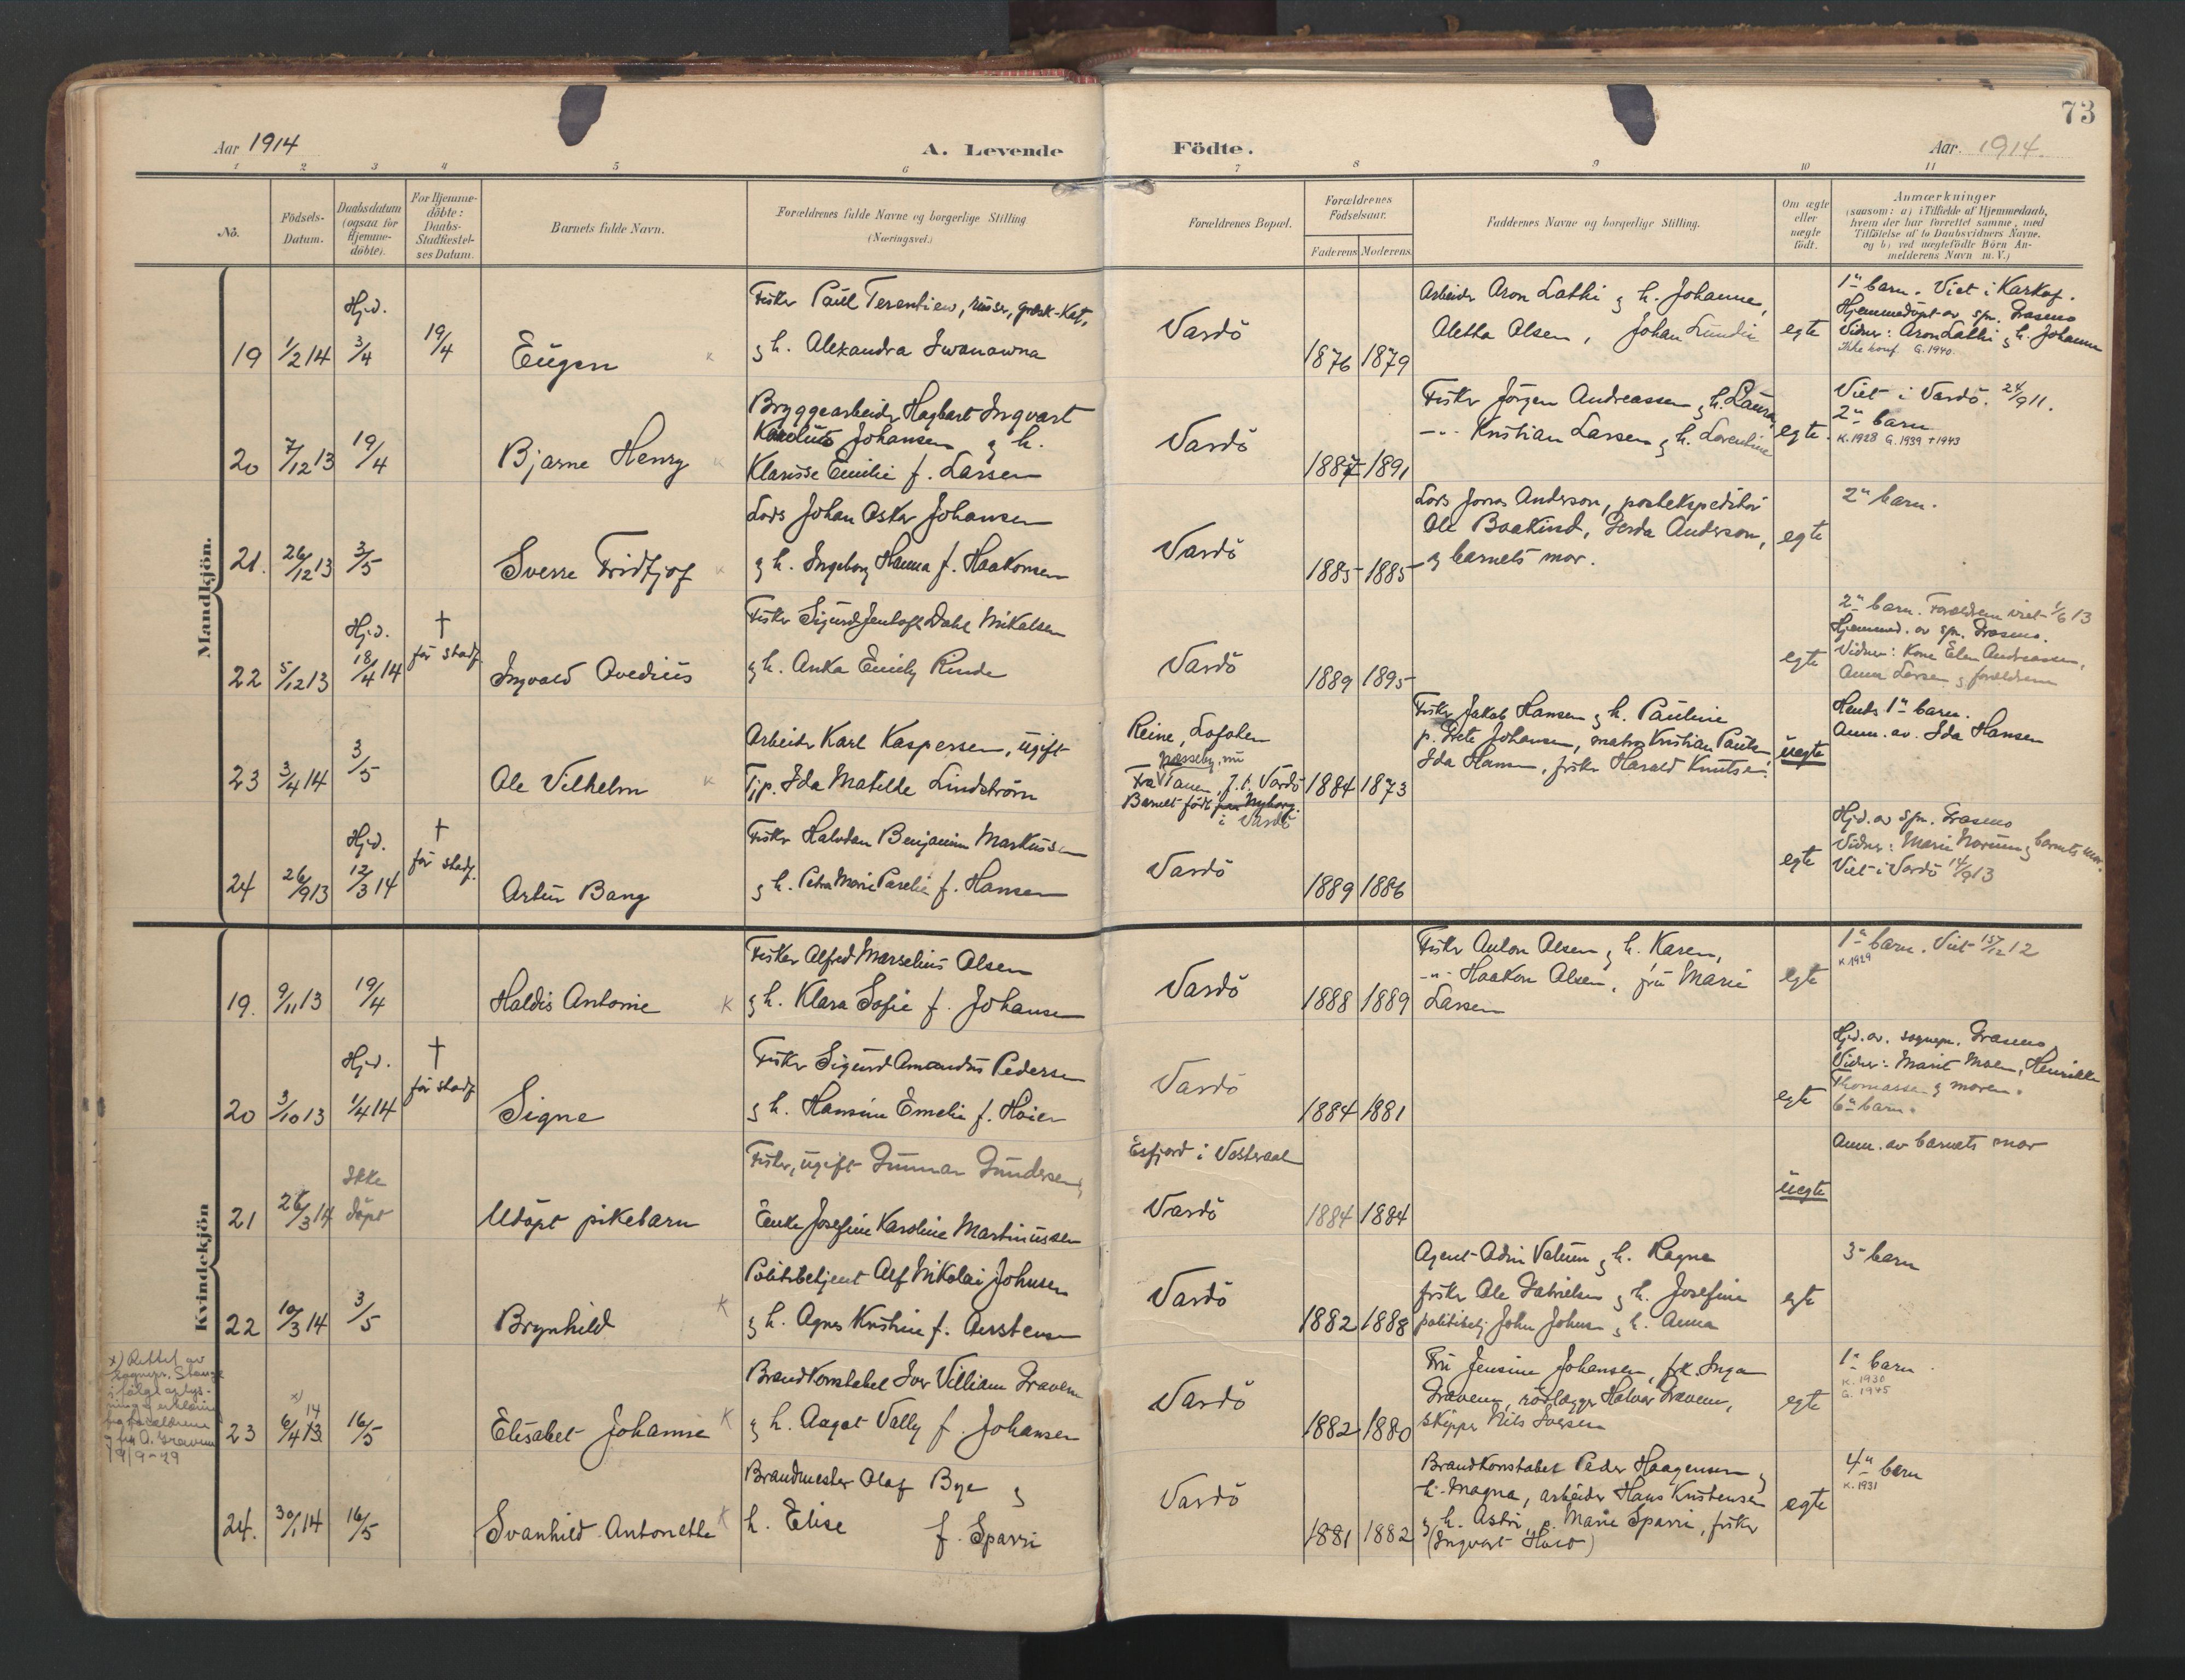 73
Aar 1914
A. Levende Födte.
Aar. 1914.
1 2 3 4 5 6 7 8 9 10 11
No.
Födsels-Datum.
Daabsdatum (ogsaa for Hjemme-döbte).
For Hjemme-döbte: Daabs-Stadfæstel-ses Datum.
Barnets fulde Navn.
Forældrenes fulde Navne og borgerlige Stilling (Næringsvei.)
Forældrenes Bopæl.
Forældrenes Födselsaar.
Faderens Moderens
Faddernes Navne og borgerlige Stilling.
Om ægte eller uægte födt.
Anmærkninger
(saasom: a) i Tilfælde af Hjemmedaab,
hvem der har forrettet samme, med
Tilföielse af to Daabsvidners Navne.
og b) ved uægtefödte Börn An-
melderens Navn m. V.)
Mandkjön.
19 1/2 14 Hj.d. 3/4 19/4 Eugen
Fisker Paul Terentiew, russer, græsk-kat.
g h. Alexandra Iwanawna
Vardö 1876 1879
Arbeider Aron Lathi g h. Johanne,
Aletha Olsen, Johan Lundi
egte
1ste barn. Viet i Karkof.
Hjemmedöpt av spr. Grasmo
Vidner: Aron Lathi g h. Johanne
Ikke konf. G. 1940.
20 7/12 13 19/4 Bjarne Henry
Bryggearbeider Hagbart Ingvart
Johansen g h.
Klarisse Emilie f. Larsen
Vardö 1887 1891
Fisker Jörgen Andreassen g h. Laura,
-"- Kristian Larsen g h. Lorentine
egte.
Viet i Vardö. 24/9 11.
2 barn
K. 1928 G. 1939 † 1943
21. 26/12 13 3/5 Sverre Fridtjof
Lods Johan Oskar Johansen
g h. Ingeborg Hanna f. Haakonsen
Vardö 1885 1885
Lods Jonas Anderson, postekspeditör
Ole Baakind, Gerda Anderson,
g barnets mor.
egte
2 barn.
22 5/12 13 Hj.d. 18/4 14 † för stadf. Ingvald Ovedius
Fisker Sigurd Jentoft Dahl Mikalsen
g h. Anka Emily Rinde
Vardö 1889 1895
egte
2 barn. Forældrene viet 1/6 13
Hjemmed. av spr. Grasmo.
Vidner: Kone Elen Andreassen,
Anna Larsen g forældrene
23 3/4 14 3/5 Ole Vilhelm
Arbeider Karl Kaspersen, ugift
Tjp. Ida Matilde Lindström
Reine, Lofoten
Næsseby, nu
Fra Tanen, f.t. Vardö
Barnet födt Nyborg.
i Vardö
1884 1873
Fisker Jakob Hansen g h. Pauline
p. Grete Johansen, matros Kristian Pauls
Ida Hansen, fisker Harald Knutsen.
uegte
Hends 1 barn.
Anm. av. Ida Hansen
24 26/9 13 Hj.d. 12/3 14 † för stadf. Artur Bang
Fisker Halvdan Benjamin Markussen
g h. Petra Marie Parelie f. Hansen
Vardö 1889 1886
egte
Hj.d. av spr. Grasmo
Vidner: Marie Norum g barnets mor.
Viet i Vardö 14/9 13
Kvindekjön
19. 9/11 13 19/4 Haldis Antonie K
Fisker Alfred Marselius Olsen
g h. Klara Sofie f. Johansen
Vardö 1888 1889
Fisker Anton Olsen g h. Karen,
-"- Haakon Olsen, fru Marie
Larsen
egte
1 barn. Viet 15/12 12
K 1929
20 3/10 13 Hj.d. 1/4 14 † för stadf. Signe
Fisker Sigurd Amandus Pedersen
g h. Hansine Emelie f. Hoier
Vardö 1884 1881
egte
Hj.d. av. sognepr. Grasmo
Vidner: Marit Moen, Henrikke
Thomassen g moren.
6 barn.
21 26/3 14 Ikke döpt Udöpt pikebarn
Fisker, ugift Gunnar Gundersen,
Enke Josefine Karoline Martinussen
Esfjord i Vesteraal
Vardö 1884 1884
uegte
Anm. av barnets mor
22 10/3 14 3/5 Brynhild K
Politibetjent Alf Nikolai Johnsen
g h. Agnes Kristine f. Aarstensen
Vardö 1882 1888
Agent Odin Vatum g h. Ragna
fisker Ole Gabrielsen g h. Josefine
politibetj John Johnsen g h. Anna
egte
3 barn
x) Rettet av
sognepr. Stange
ifölge oplys-
ning g erklæring
fra forældrene
g fru A. Gravem
19/9-29
23 x) 6/4 13 14 16/5 Elisabet Johanne K
Brandkonstabel Iver Villiam Gravem
g h. Aagot Vally f. Johansen
Vardö 1882 1880
Fru Jensine Johansen, frk. Inga
Gravem, rörlægger Halvor Gravem,
skipper Nils Iversen
egte
1 barn.
K. 1930
G. 1945
24. 30/1 14 16/5 Svanhild Antonette K
Brandmester Olaf Bye g
h. Elise f. Sparri
Vardö 1881 1882
Brandkonstabel Peder Haagensen g
h. Magna, arbeider Hans Kristensen
g h. Astri, p. Marie Sparri, fisker
(Ingvart Hoid)
egte
4 barn
K. 1931